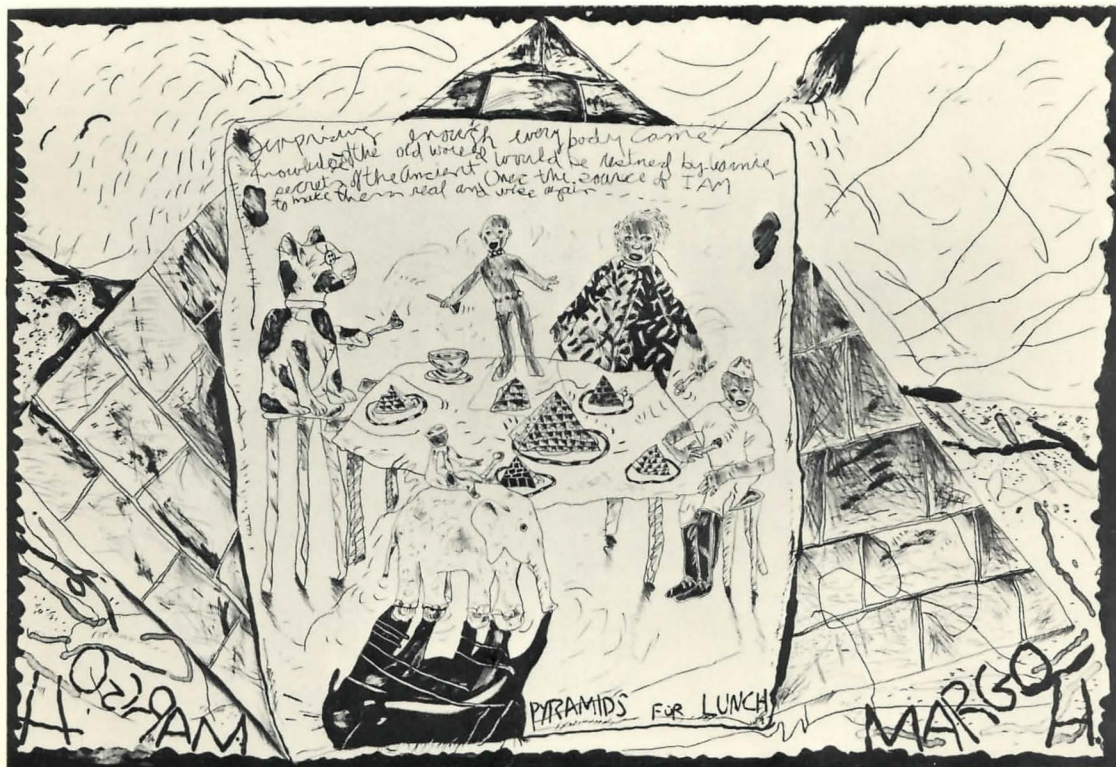 Surprizing enough everybody came
of the old world would be by
secrets of the ancient Once the source of I AM
to make them real and wise again
PYRAMIDS FOR LUNCH
H. MARGO
MARGO H.